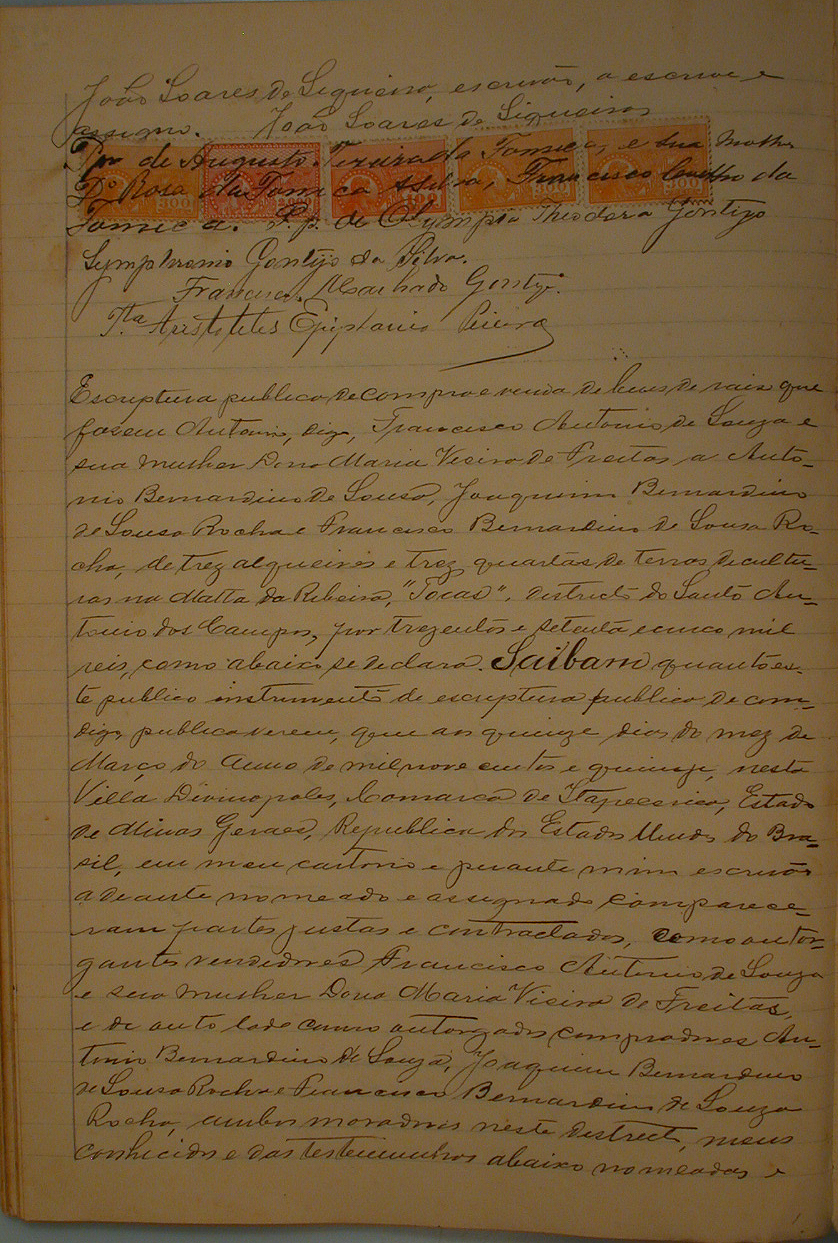 João Soares de Siqueira, escrivão, a escrevi e
assigno. João Soares de Siqueira
Por de Augusto Teixeira da Fonseca, e sua Mulher
Dª Rosa da Fonseca e Silva, Francisco Coelho da
Fonseca. P.p. de Olympia Theodora Gontijo
Symphronio Gontijo da Silva.
Francisco Machado Gontijo.
Tta Aristoteles Epiphanio Pereira
300 2000 300 300
Escriptura publica de compra e venda de bens de raiz que
fasem Antonio, digo, Francisco Antonio de Souza e
sua mulher Dona Maria Vieira de Freitas a Anto-
nio Bernardino de Sousa, Joaquim Bernardino
de Sousa Rocha e Francisco Bernardino de Sousa Ro-
cha, de trez alqueires e trez quartas de terras de cultu-
ras na Matta da Ribeira, "Tocas", districto do Santo An-
tonio dos Campos, por trezentos e setenta e cinco mil
reis, como abaixo se declara. Saibam quanto es-
te publico instrumento de escriptura publica de com-
digo, publica verem, que aos quinze dias do mez de
Março do anno de mil nove centos e quinze, nesta
Villa Divinopoles, Comarca de Itapecerica, Estado
de Minas Geraes, Republica dos Estados Unidos do Bra-
sil, em meu cartorio e perante mim escrivão
adeante nomeado e assignado comparece-
ram partes justas e contractadas, como outor-
gantes vendedores Francisco Antonio de Souza
e sua mulher Dona Maria Vieira de Freitas,
e de outo lado como outorgados compradores An-
tonio Bernardino de Souza, Joaquim Bernardino
de Sousa Rocha e Francisco Bernardino de Souza
Rocha, ambos moradores neste districto, meus
conhecidos e das testemunhas abaixo nomeadas e